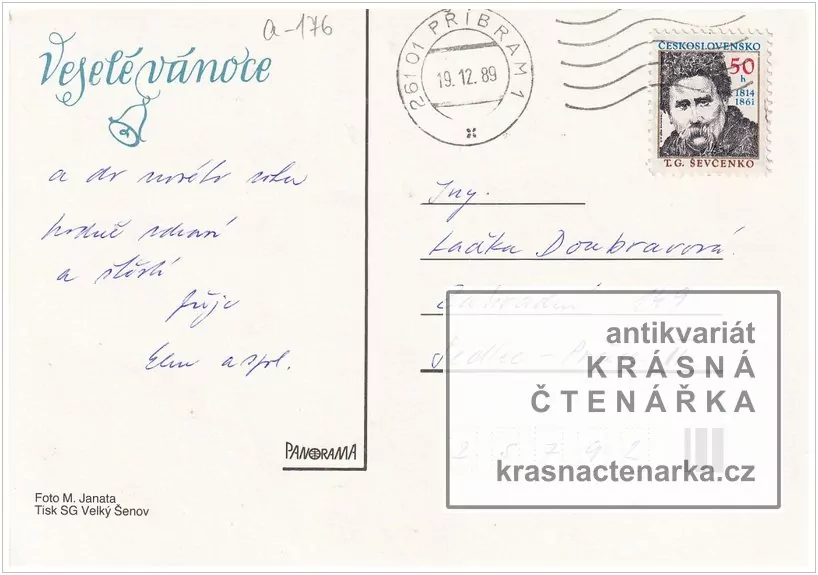 a-176
Veselé vánoce
a do nového roku
hodně zdraví
a štěstí
přeje
a spol.
PANORAMA
Foto M. Janata
Tisk SG Velký Šenov
261 01 PŘÍBRAM 1
19.12.89
ČESKOSLOVENSKO
50
h
1814
1861
T.G. ŠEVČENKO
Ing.
Laďka Doubravová
Zahradní 149
Sedlec -
25792
antikvariát
KRÁSNÁ
ČTENÁŘKA
krasnactenarka.cz